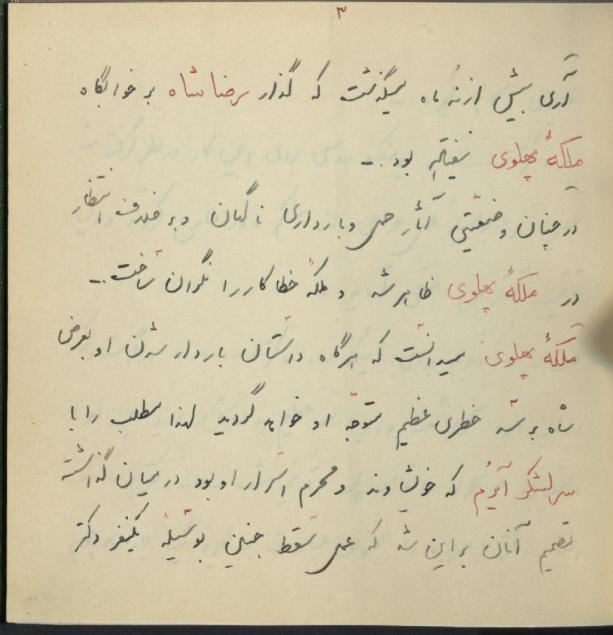 ۳
آری بیش از نه ماه میگذشت که گذار رضا شاه بر خوابگاه
ملکهٔ پهلوی نیفتاده بود...
در چنان وضعیّتی آثار حمل و بارداری ناگهان و بر خلاف انتظار
در ملکهٔ پهلوی ظاهر شد و ملکهٔ خطا کار را نگران ساخت...
ملکهٔ پهلوی میدانست که هرگاه داستان باردار شدن او بعرض
شاه برسد خطری عظیم متوجّه او خواهد گردید لهذا مطلب را با
سرلشکر آیرُم که خویشاوند و محرم اسرار او بود در میان گذاشت
تصمیم آنان بر این شد که عمل سقط جنین بوسیلهٔ یکنفر دکتر